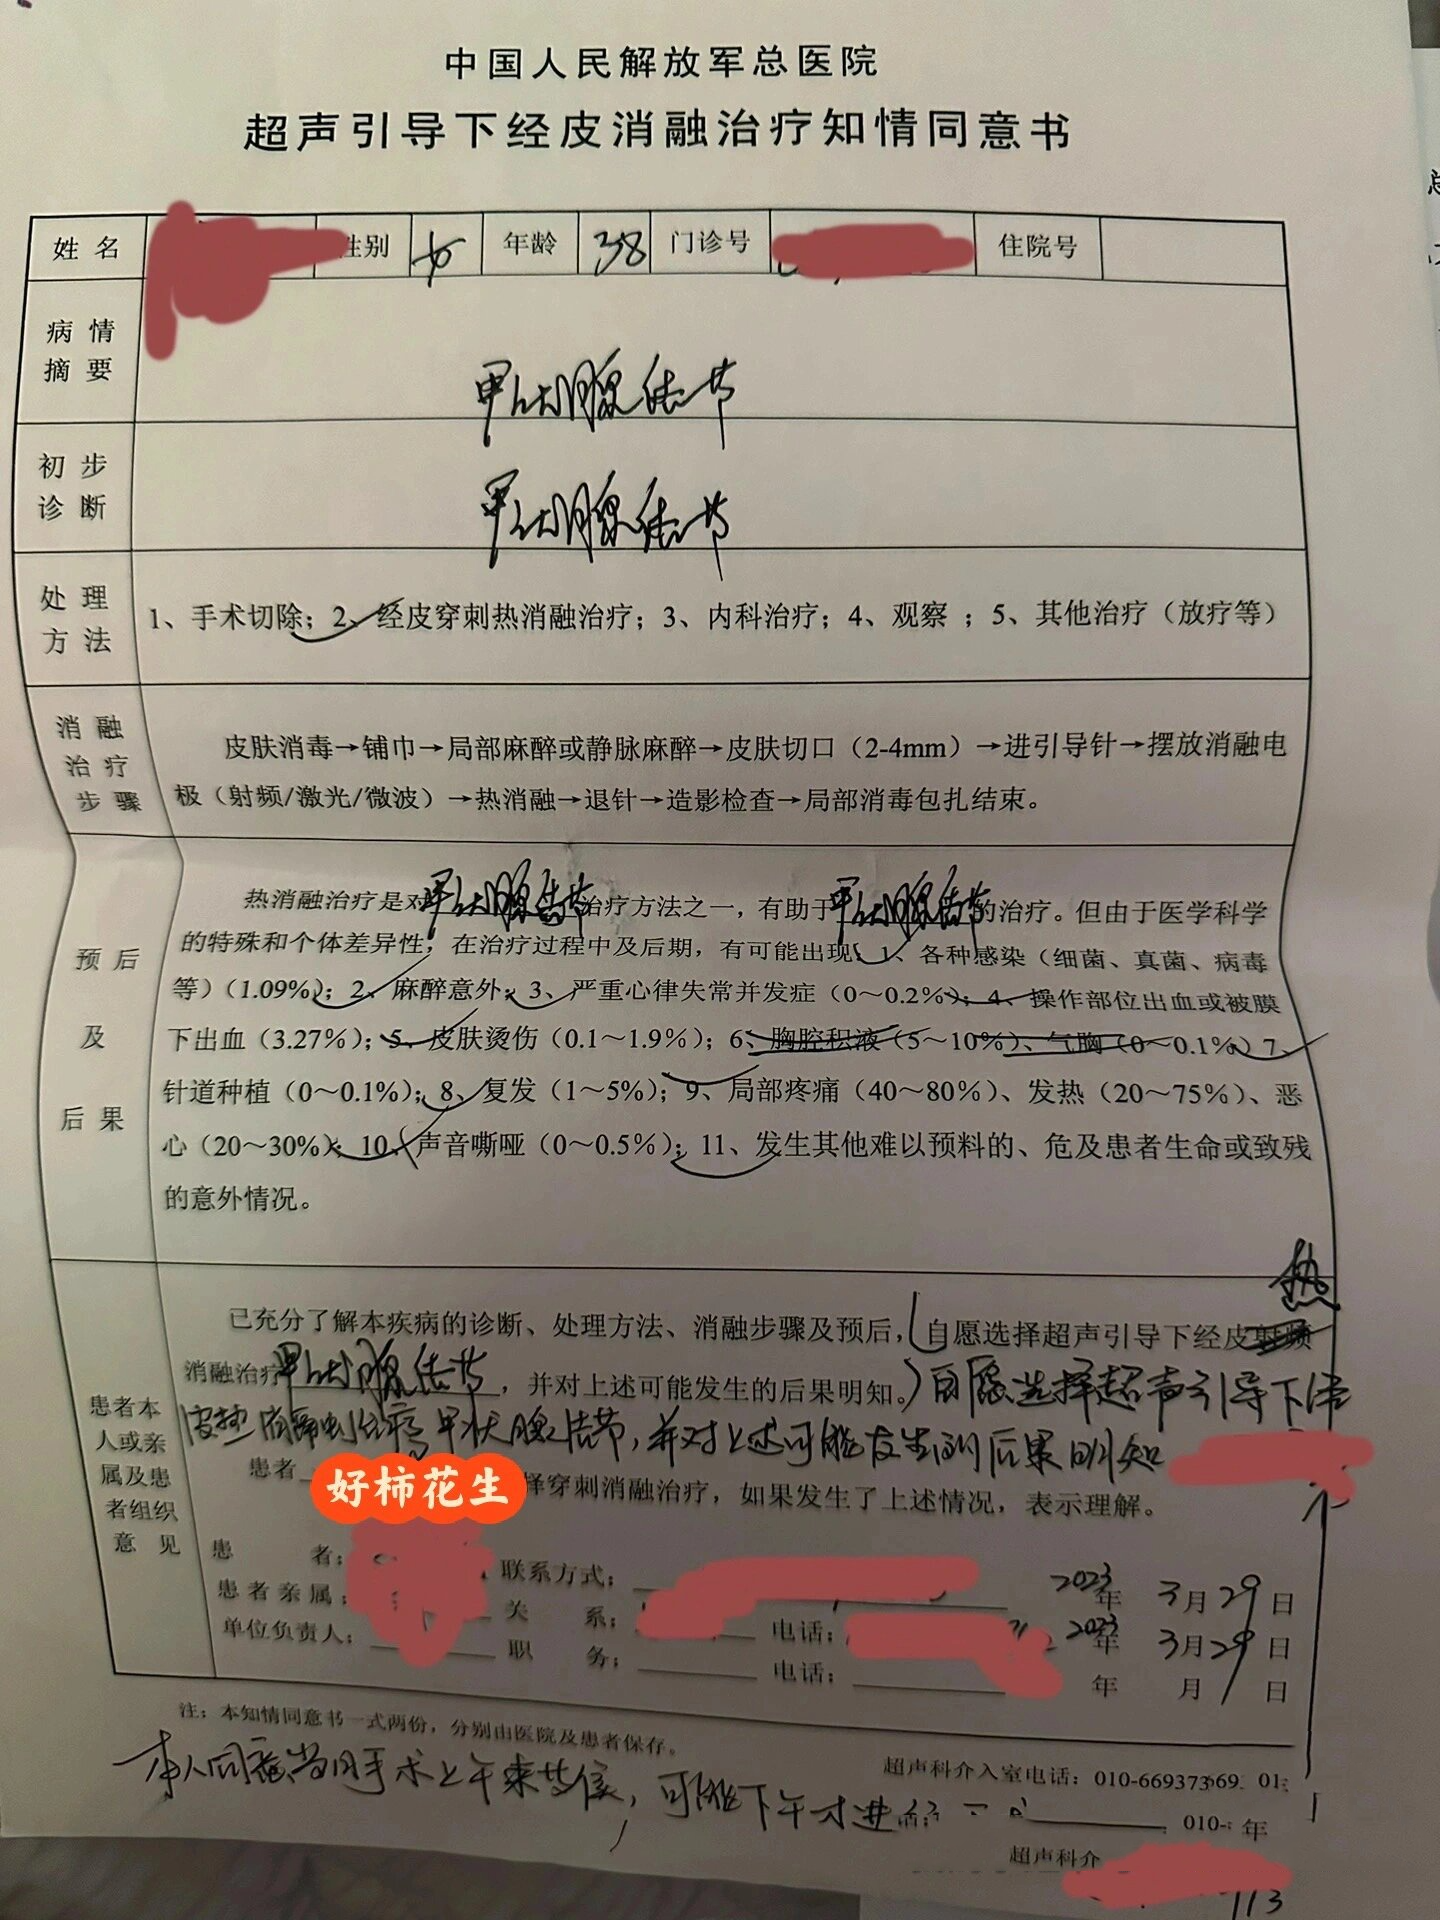 中国人民解放军总医院
超声引导下经皮消融治疗知情同意书
姓 名 性别 女 年龄 38 门诊号 住院号
病 情 摘 要 甲状腺结节
初 步 诊 断 甲状腺结节
处 理 方 法 1、手术切除；2、经皮穿刺热消融治疗；3、内科治疗；4、观察 ；5、其他治疗（放疗等）
消 融 治 疗 步 骤
皮肤消毒→铺巾→局部麻醉或静脉麻醉→皮肤切口（2-4mm）→进引导针→摆放消融电
极（射频/激光/微波）→热消融→退针→造影检查→局部消毒包扎结束。
预 后 及 后 果
热消融治疗是对甲状腺结节治疗方法之一，有助于甲状腺结节的治疗。但由于医学科学
的特殊和个体差异性，在治疗过程中及后期，有可能出现：1、各种感染（细菌、真菌、病毒
等）（1.09%）；2、麻醉意外；3、严重心律失常并发症（0～0.2%）；4、操作部位出血或被膜
下出血（3.27%）；5、皮肤烫伤（0.1～1.9%）；6、胸腔积液（5～10%）、气胸（0～0.1%）7、
针道种植（0～0.1%）；8、复发（1～5%）；9、局部疼痛（40～80%）、发热（20～75%）、恶
心（20～30%）；10、声音嘶哑（0～0.5%）；11、发生其他难以预料的、危及患者生命或致残
的意外情况。
患者本人或亲属及患者组织意 见
热
已充分了解本疾病的诊断、处理方法、消融步骤及预后，（自愿选择超声引导下经皮射频
消融治疗甲状腺结节，并对上述可能发生的后果明知。）自愿选择超声引导下经
皮热消融治疗甲状腺结节，并对上述可能发生的后果明知
患者 好柿花生 择穿刺消融治疗，如果发生了上述情况，表示理解。
患 者： 联系方式： 2023年 3月29日
患者亲属： 关 系： 电话： 2023年 3月29日
单位负责人： 职 务： 电话： 年 月 日
注：本知情同意书一式两份，分别由医院及患者保存。
超声科介入室电话：010-669373
本人同意当日手术上午来等候，可能下午才进
010- 年
超声科介